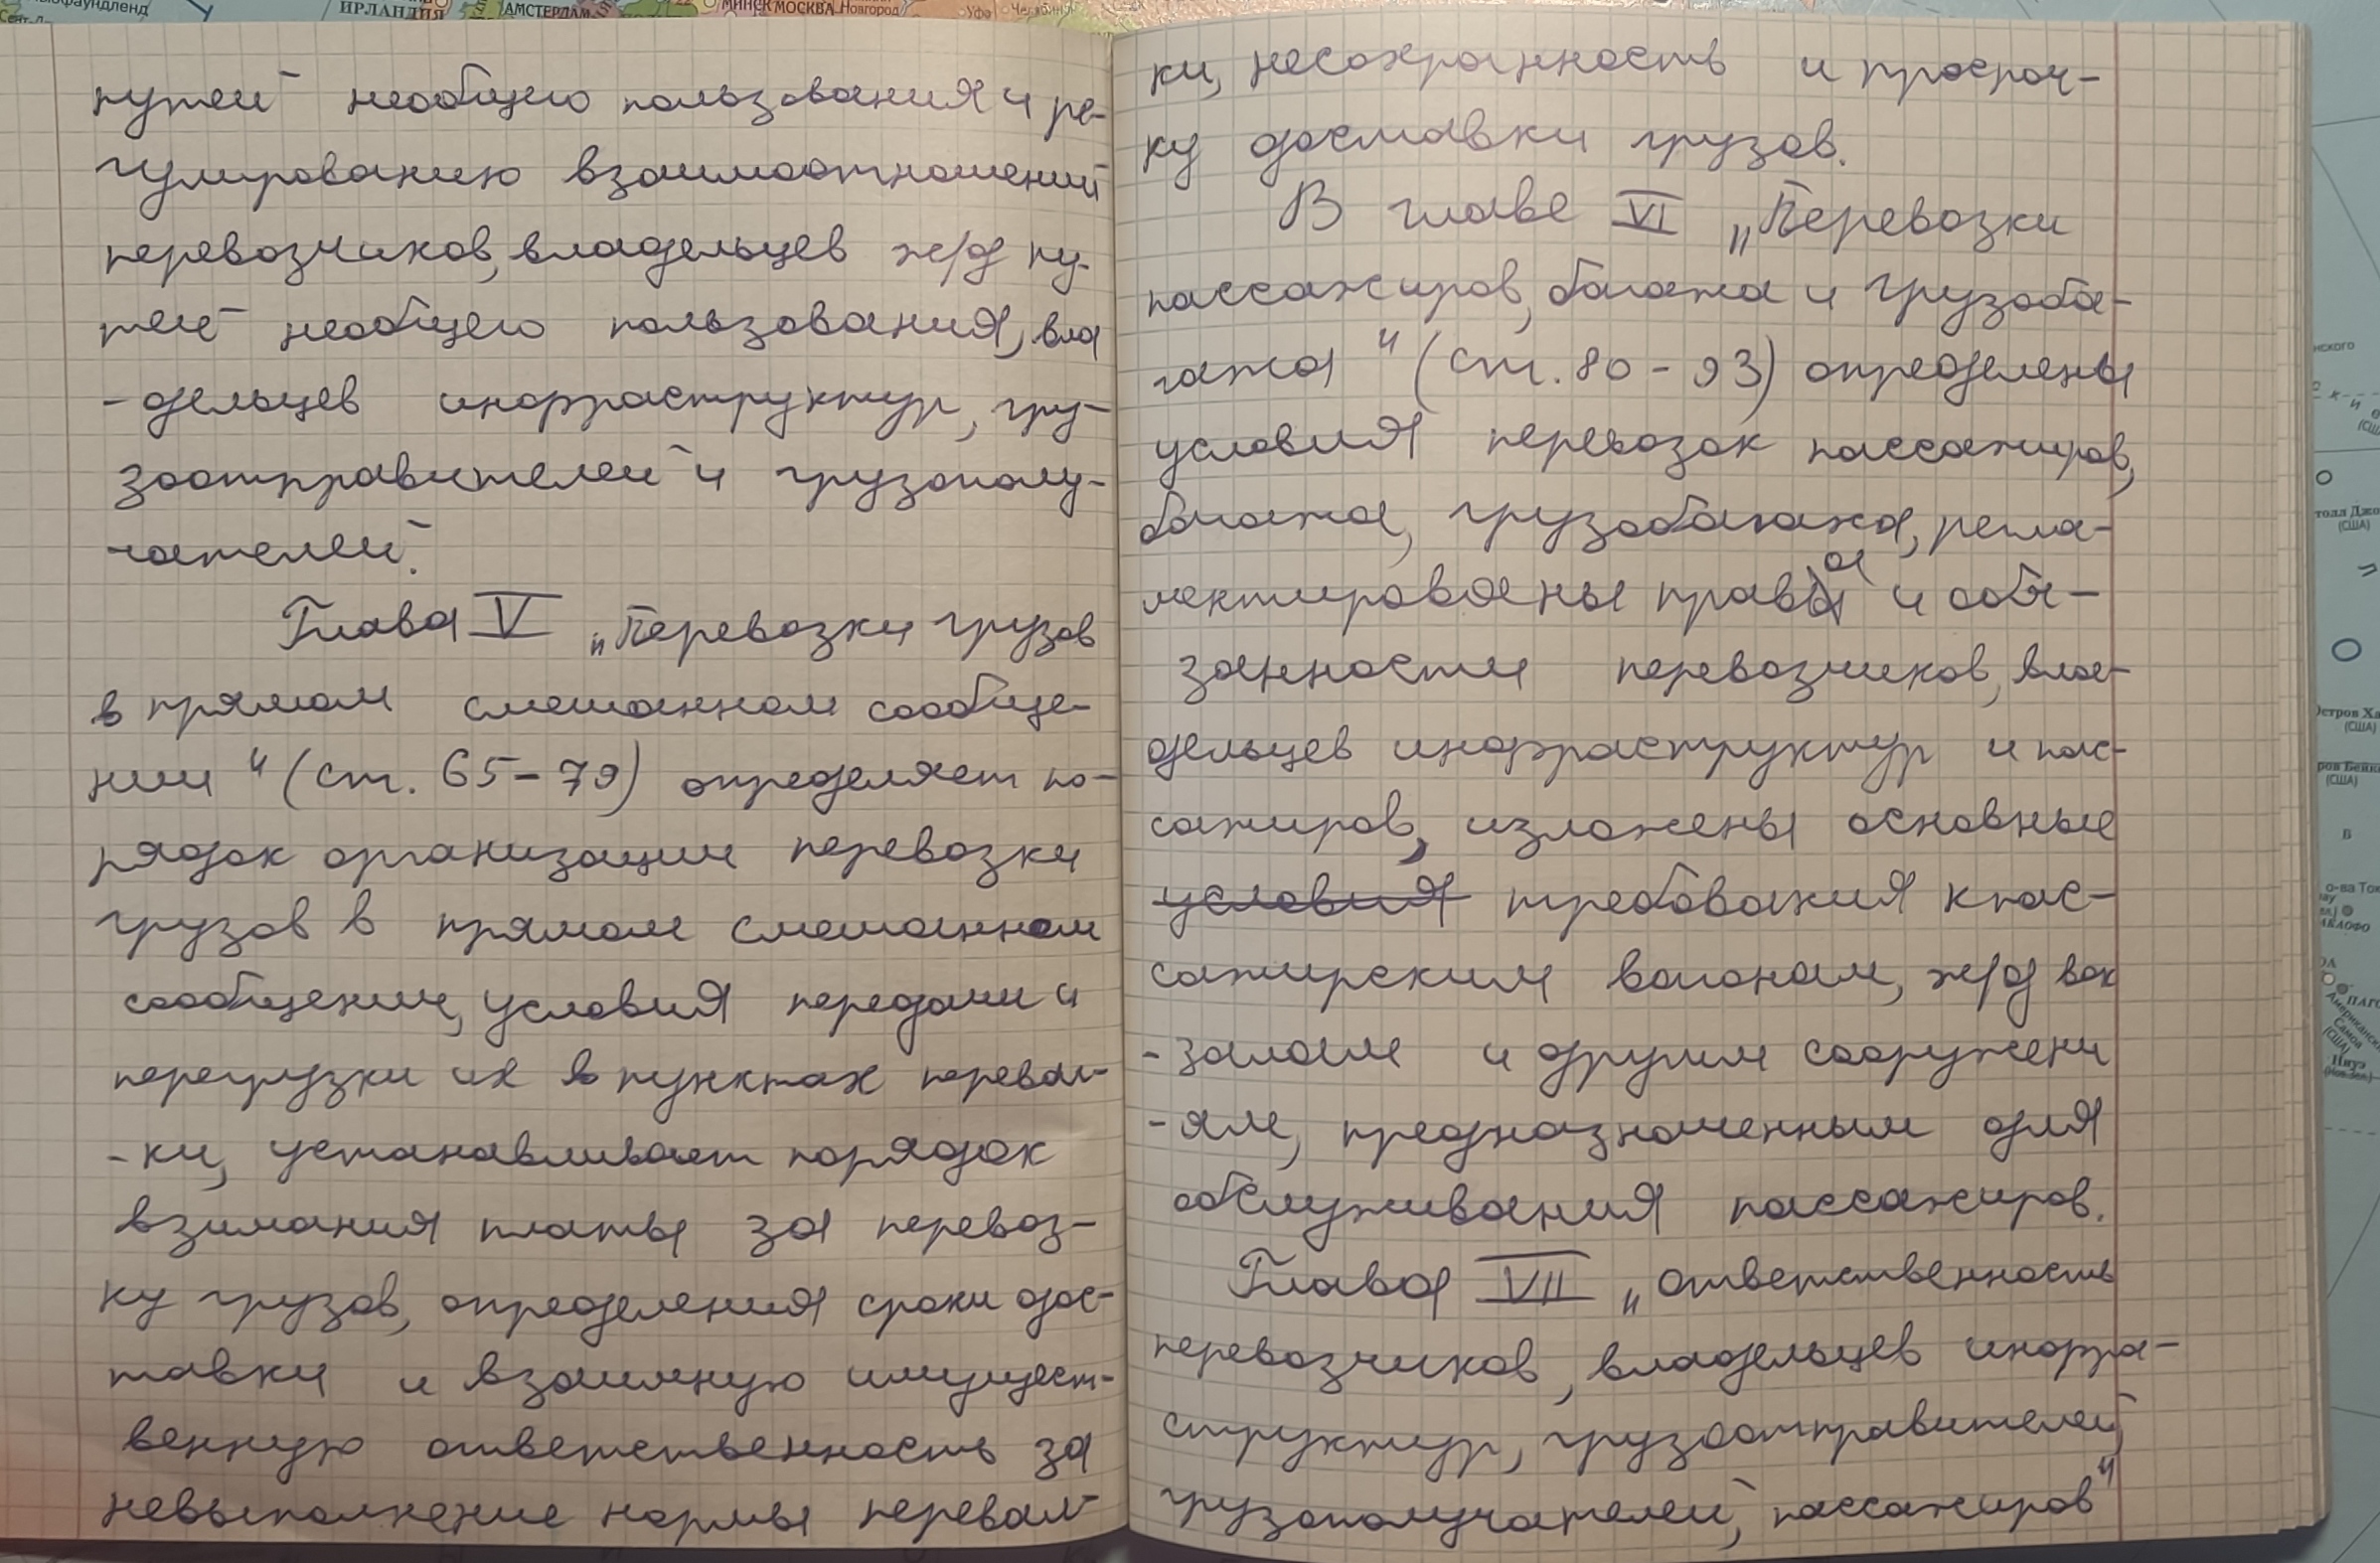 ИРЛАНДИЯ
АМСТЕРДАМ
МИНСК МОСКВА Новгород
Уфа Челябинск
путей необщего пользования и ре-
гулированию взаимоотношений
перевозчиков, владельцев ж/д пу-
тей необщего пользования, вла
-дельцев инфраструктур, гру-
зоотправителей и грузополу-
чателей.
Глава V „Перевозки грузов
в прямом смешанном сообще-
нии“ (ст. 65-79) определяет по-
рядок организации перевозки
грузов в прямом смешанном
сообщении, условия передачи и
перегрузки их в пунктах перевал-
-ки, устанавливает порядок
взимания платы за перевоз-
ку грузов, определения сроки дос-
тавки и взаимную имущест-
венную ответственность за
невыполнение нормы перевал-
ки, несохранность и просроч-
ку доставки грузов.
В главе VI „Перевозки
пассажиров, багажа и грузоба-
гажа“ (ст. 80-93) определены
условия перевозок пассажиров,
багажа, грузобагажа, регла-
ментированы права и обя-
занности перевозчиков, вла-
дельцев инфраструктур и пас-
сажиров, изложены основные
условия требования к пас-
сажирским вагонам, ж/д вок
-залам и другим сооружени
-ям, предназначенным для
обслуживания пассажиров.
Глава VII „Ответственность
перевозчиков, владельцев инфра-
структур, грузоотправителей,
грузополучателей, пассажиров“